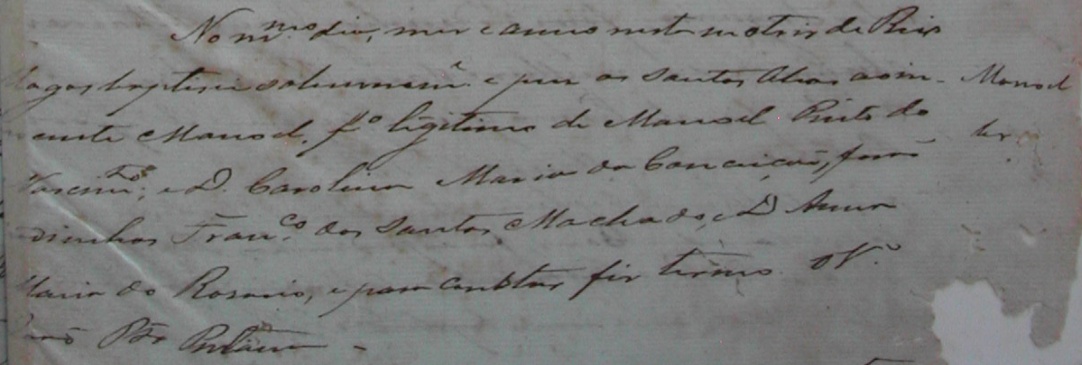 No m.mo dia, mez e anno nesta matriz de Rio
baptizei solemnem.e e puz os santos oleos ao in- Manoel
nocente Manoel, f.o legitimo de Manoel Pinto do
e D. Carolina Maria da Conceição, forão
dinhos Fran.co dos Santos Machado, e D. Anna
Maria do Rosario, e para constar fiz termo. O V.o